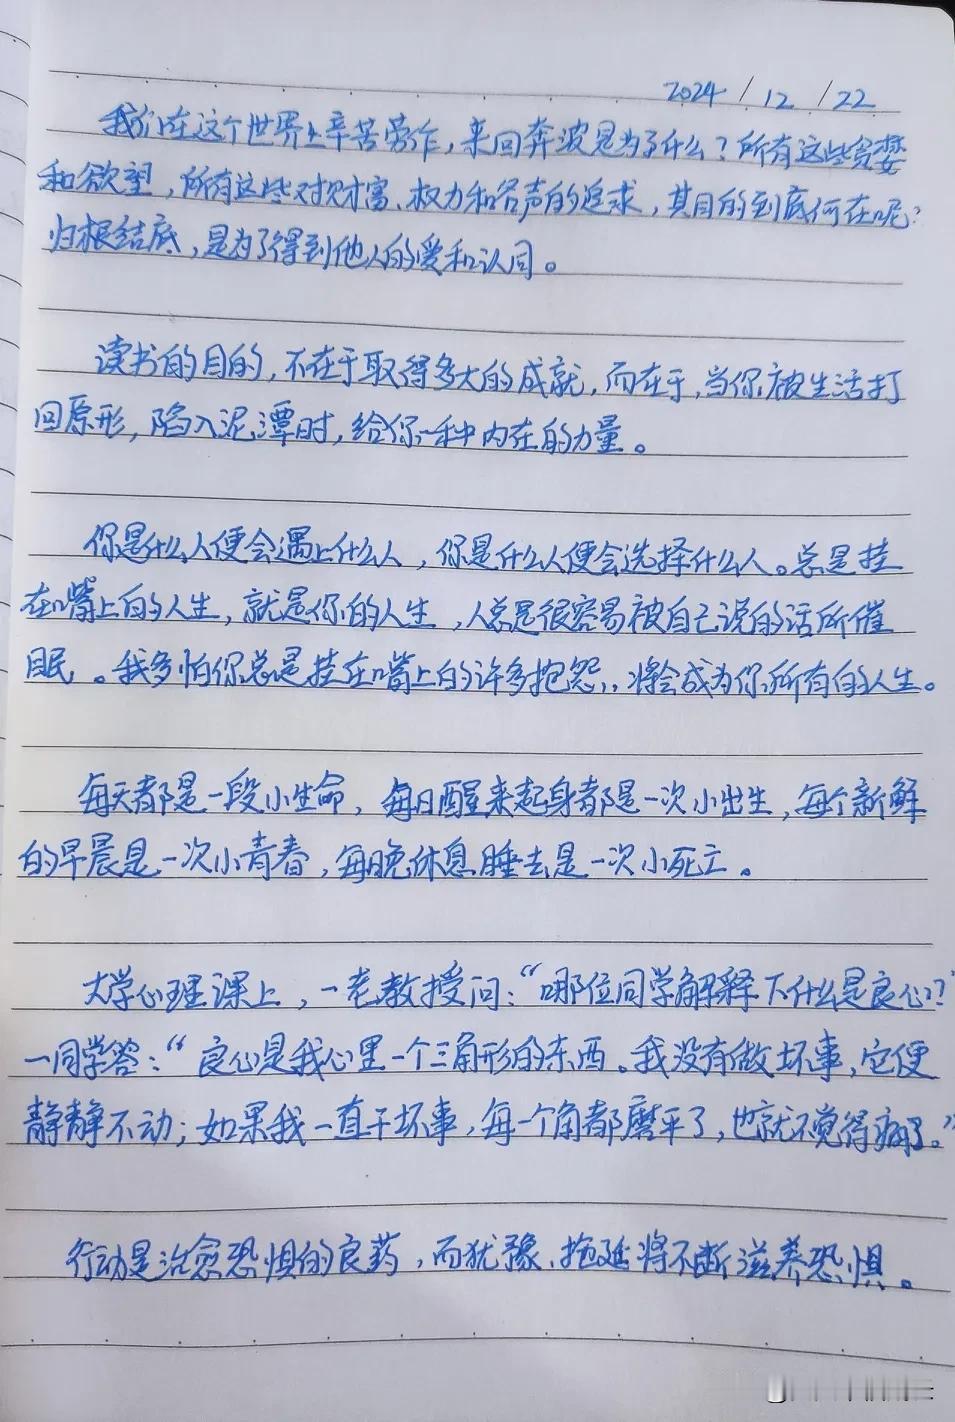 2024/12/22
我们在这个世界上辛苦劳作，来回奔波是为了什么？所有这些贪婪
和欲望，所有这些对财富、权力和名声的追求，其目的到底何在呢？
归根结底，是为了得到他人的爱和认同。
读书的目的，不在于取得多大的成就，而在于，当你被生活打
回原形，陷入泥潭时，给你一种内在的力量。
你是什么人便会遇上什么人，你是什么人便会选择什么人。总是挂
在嘴上的人生，就是你的人生，人总是很容易被自己说的话所催
眠。我多怕你总是挂在嘴上的许多抱怨，将会成为你所有的人生。
每天都是一段小生命，每日醒来起身都是一次小出生，每个新鲜
的早晨是一次小青春，每晚休息睡去是一次小死亡。
大学心理课上，一老教授问：“哪位同学解释下什么是良心？
一同学答：“良心是我心里一个三角形的东西。我没有做坏事，它便
静静不动；如果我一直干坏事，每一个角都磨平了，也就不觉得痛了。”
行动是治愈恐惧的良药，而犹豫、拖延将不断滋养恐惧。